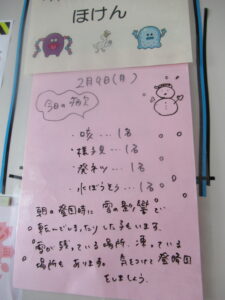 ほけん
2月9日(月)
今日の病欠
・咳…1名
・様子見…1名
・発ネツ…1名
・水ぼうそう…1名
朝の登園時に雪の影響で
転んでしまったりした子もいます。
雪が残っている場所、凍っている
場所もあります。気をつけて登降園
をしましょう。